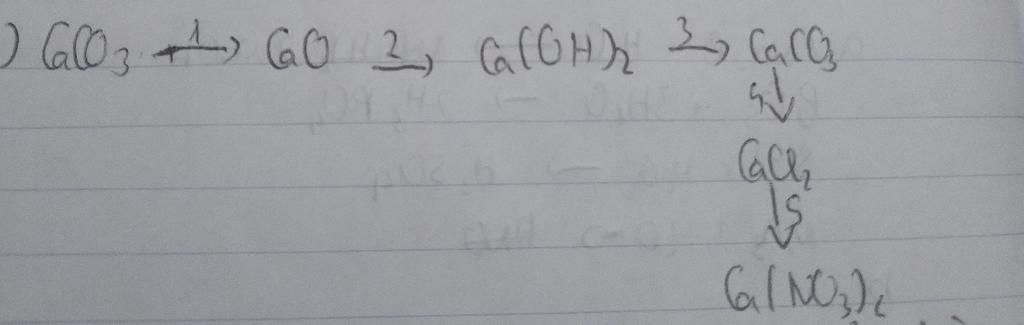 ) CaCO3 1→ CaO 2→ Ca(OH)2 3→ CaCO3
4↓
CaCl2
↓5
Ca(NO3)2